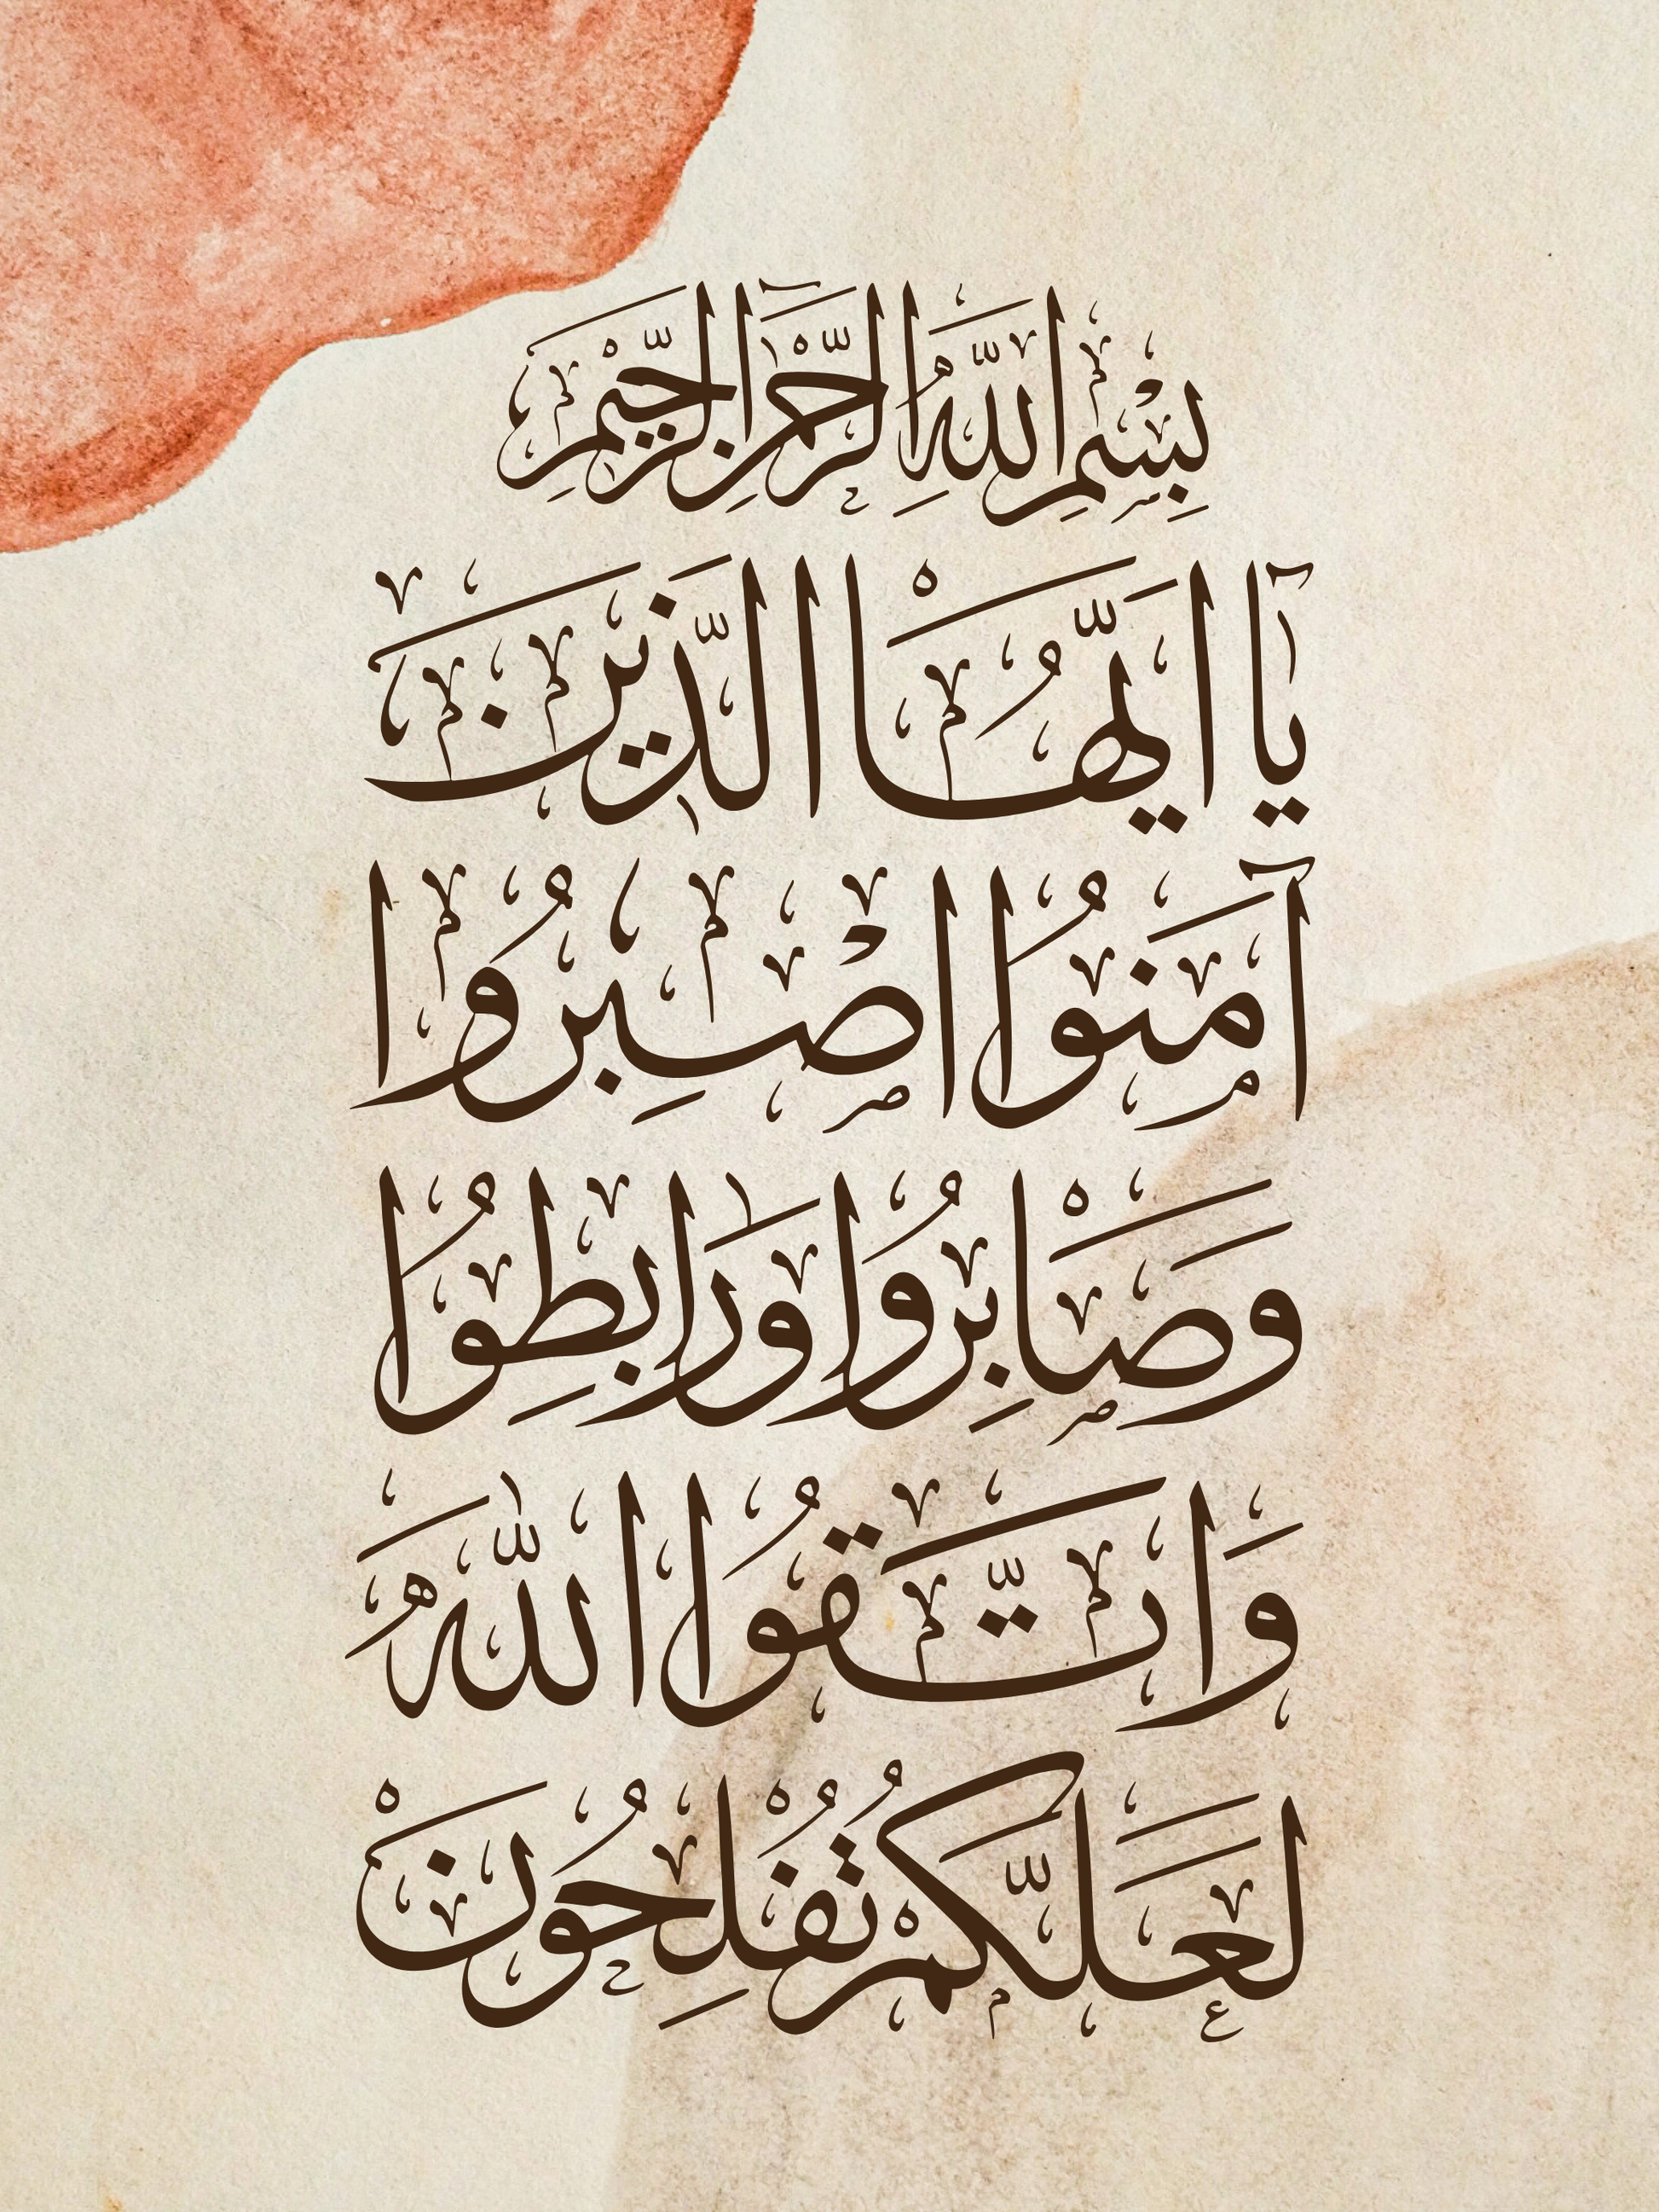 بِسْمِ اللَّهِ الرَّحْمٰنِ الرَّحِيْمِ
يَآ اَيُّهَا الَّذِيْنَ
آمَنُوا اصْبِرُوا
وَصَابِرُوا وَرَابِطُوا
وَاتَّقُوا اللّٰهَ
لَعَلَّكُمْ تُفْلِحُونَ